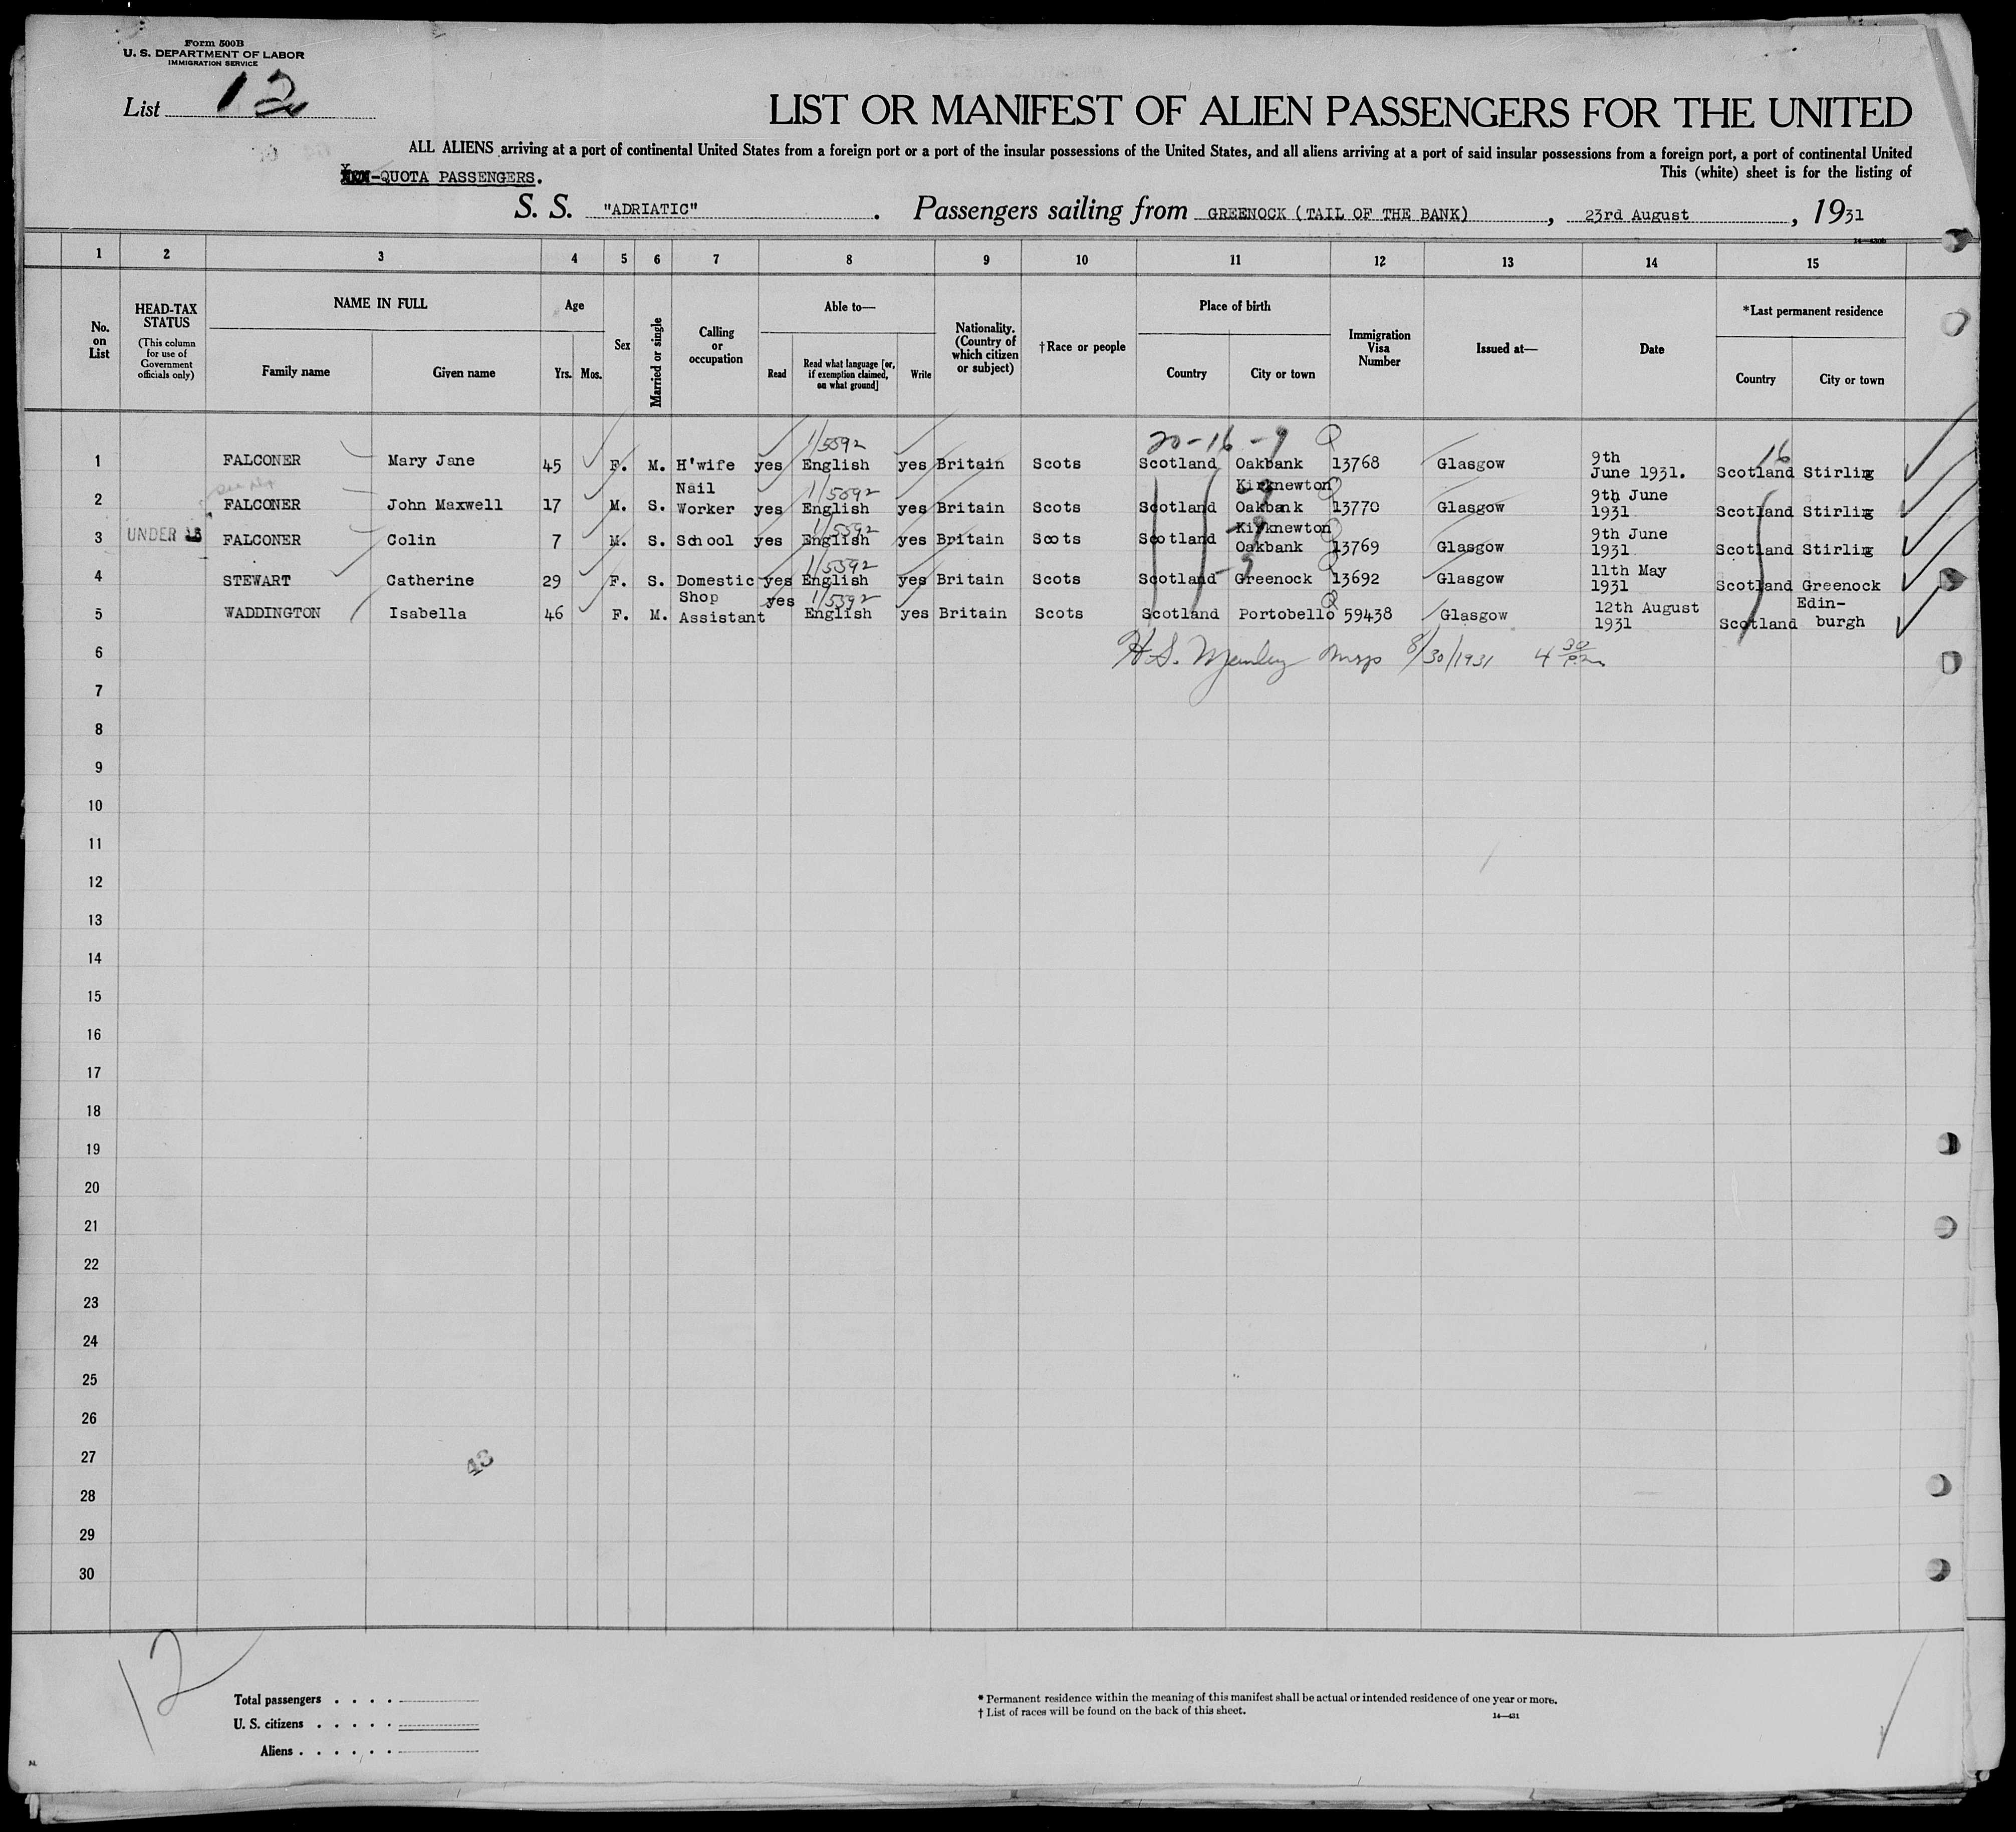 Form 500B
U. S. DEPARTMENT OF LABOR
IMMIGRATION SERVICE
List 12
LIST OR MANIFEST OF ALIEN PASSENGERS FOR THE UNITED
ALL ALIENS arriving at a port of continental United States from a foreign port or a port of the insular possessions of the United States, and all aliens arriving at a port of said insular possessions from a foreign port, a port of continental United
This (white) sheet is for the listing of
-QUOTA PASSENGERS.
S. S. "ADRIATIC" . Passengers sailing from GREENOCK (TAIL OF THE BANK) , 23rd August , 1931
1 2 3 4 5 6 7 8 9 10 11 12 13 14 15
No. on List
HEAD-TAX STATUS
(This column for use of Government officials only)
NAME IN FULL
Family name Given name
Age
Yrs. Mos.
Sex
Married or single
Calling or occupation
Able to—
Read Read what language [or, if exemption claimed, on what ground] Write
Nationality. (Country of which citizen or subject)
†Race or people
Place of birth
Country City or town
Immigration Visa Number
Issued at—
Date
*Last permanent residence
Country City or town
20-16-9 16
1 FALCONER Mary Jane 45 F. M. H'wife yes 1/5592 English yes Britain Scots Scotland Oakbank Kirknewton Q 13768 Glasgow 9th June 1931. Scotland Stirling
2 FALCONER John Maxwell 17 M. S. Nail Worker yes 1/5592 English yes Britain Scots Scotland Oakbank Kirknewton 13770 Glasgow 9th June 1931 Scotland Stirling
3 UNDER 16 FALCONER Colin 7 M. S. School yes 1/5592 English yes Britain Scots Scotland Oakbank 13769 Glasgow 9th June 1931. Scotland Stirling
4 STEWART Catherine 29 F. S. Domestic yes 1/5592 English yes Britain Scots Scotland Greenock 13692 Glasgow 11th May 1931 Scotland Greenock
5 WADDINGTON Isabella 46 F. M. Shop Assistant yes 1/5592 English yes Britain Scots Scotland Portobello Q 59438 Glasgow 12th August 1931 Scotland Edin-burgh
6 H. S. 8/30/1931 4 30 P.m.
7
8
9
10
11
12
13
14
15
16
17
18
19
20
21
22
23
24
25
26
27
43
28
29
30
12
Total passengers . . . .
U. S. citizens . . . . .
Aliens . . . . . .
* Permanent residence within the meaning of this manifest shall be actual or intended residence of one year or more.
† List of races will be found on the back of this sheet.
14—431